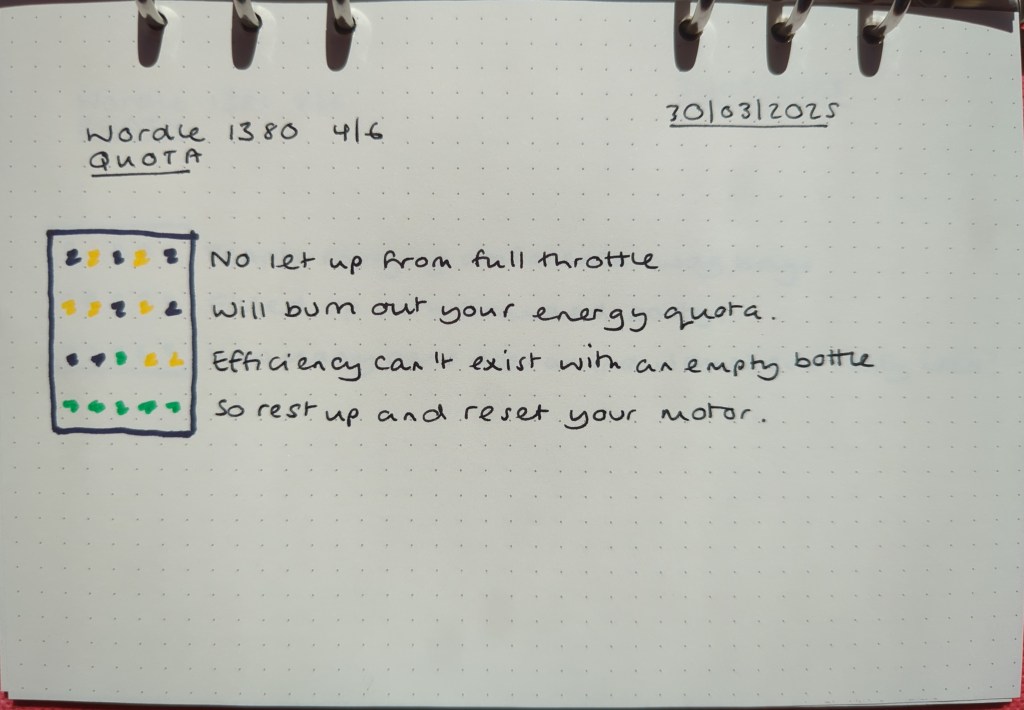 30/03/2025
Wordle 1380 4/6
QUOTA
No let up from full throttle
Will burn out your energy quota.
Efficiency can't exist with an empty bottle
So rest up and reset your motor.